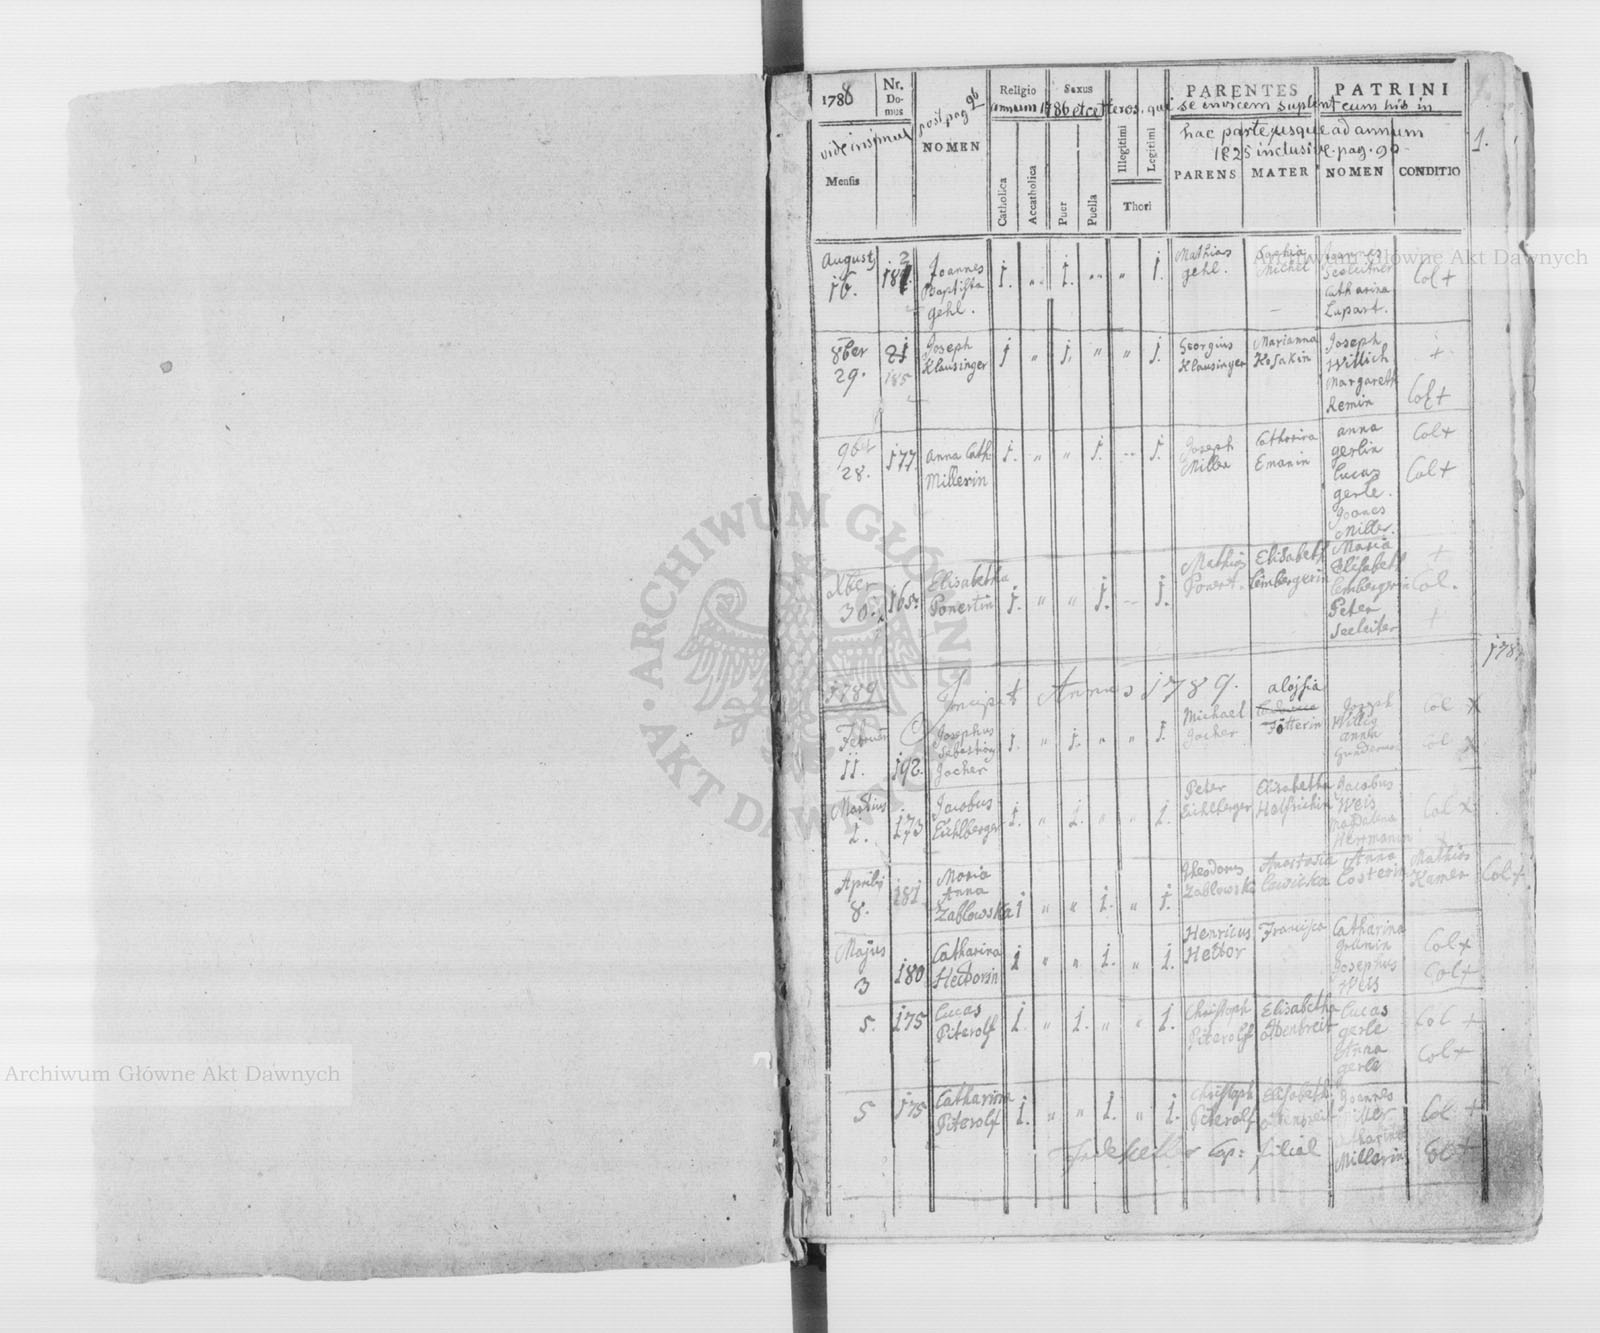 1788
Nr.
Do-
mus
post pag 96
Religio
Sexus
PARENTES
PATRINI
annum 1786 et ceteros, qui se invicem suplent cum his in
vide insimul
NOMEN
hac parte usque ad annum
1825 inclusive. pag. 90
1.
Mensis
Catholica
Accatholica
Puer
Puella
Illegitimi
Legitimi
Thori
PARENS
MATER
NOMEN
CONDITIO
Augusti
16.
Joannes
Baptista
gehl.
1.
1.
1.
Mathias
gehl.
Sophia
Michel
Joannes
Catharina
Lupart.
Col +
8ber
29.
21
185
Joseph
Klausinger
1
1.
1.
Georgius
Klausinger
Marianna
Kosakin
Joseph
Willich
Margareth
Remin
+
Col +
9ber
28.
177.
Anna Cath.
Millerin
1.
1.
1.
Joseph
Miller
Catharina
Emanin
anna
gerlin
Lucas
gerle.
Joanes
Miller.
Col +
Col +
Xber
30.
165.
Elisabetha
Ponertin
1.
1.
1.
Mathias
Ponert.
Elisabeth
Lembergerin
Maria
Elisabeth
Lembergerin
Peter
Seeleiter
+
Col.
+
1789
Incipit Annus 1789.
Februar
11.
192.
Josephus
Sebastian
Jocher
1.
1.
1.
Michael
Jocher
aloysia
Fötterin
Joseph
Willig
anna
Col x
Col x
Martius
1.
173
Jacobus
Eichlberger
1.
1.
1.
Peter
Eichlberger
Elisabetha
Holfrichin
Jacobus
Weis
Magdalena
Herrmanin
Col x
Aprilis
8.
181.
Maria
Anna
Zablowska
1
1.
1.
Theodorus
Zablowski
Anastasia
Lewicka
Anna
Costerin
Mathias
Kamer
Col +
Majus
3
180
Catharina
Hectorin
1
1.
1.
Henricus
Hector
Francisca
Catharina
Josephus
Weis
Col x
Col +
5.
175
Lucas
Piterolf
1.
1.
1.
Christoph
Piterolf
Elisabetha
Lucas
gerle
Anna
gerle
Col +
Col +
5
175
Catharina
Piterolf
1.
1.
1.
Christoph
Piterolf
Elisabeth
Joannes
Miller
Catharina
Millerin
Col +
Col +
Archiwum Główne Akt Dawnych
Archiwum Główne Akt Dawnych
ARCHIWUM GŁÓWNE AKT DAWNYCH